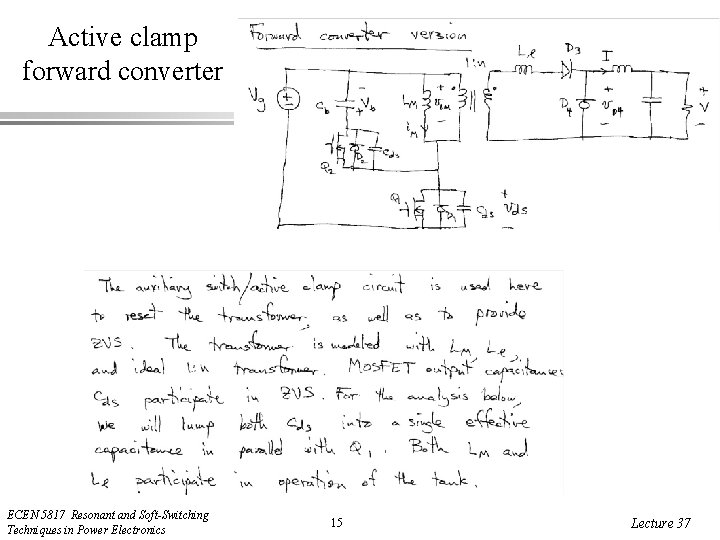 Active clamp
forward converter
Forward converter version
1:n
Le
D3
I
Vg
+
-
Cb
-
Vb
+
LM
+
vM
-
iM
D4
+
vD4
-
+
V
-
Q2
D2
Cds
Q1
D1
Cds
+
Vds
-
The auxiliary switch/active clamp circuit is used here
to reset the transformer, as well as to provide
ZVS. The transformer is modeled with LM, Le,
and ideal 1:n transformer. MOSFET output capacitances
Cds participate in ZVS. For the analysis below,
we will lump both Cds into a single effective
capacitance in parallel with Q1. Both LM and
Le participate in operation of the tank.
ECEN 5817 Resonant and Soft-Switching
Techniques in Power Electronics
15
Lecture 37